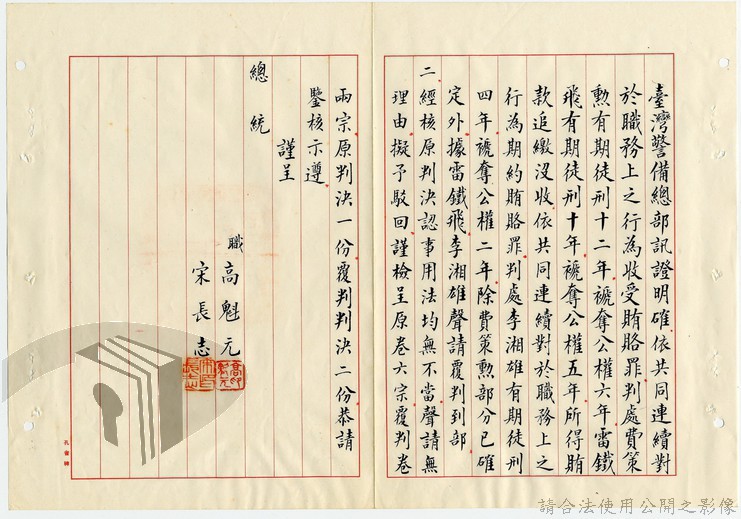 臺灣警備總部訊證明確依共同連續對
於職務上之行為收受賄賂罪判處費策
勲有期徒刑十二年褫奪公權六年雷鐵
飛有期徒刑十年褫奪公權五年所得賄
款追繳沒收依共同連續對於職務上之
行為期約賄賂罪判處李湘雄有期徒刑
四年褫奪公權二年除費策勲部分已確
定外據雷鐵飛李湘雄聲請覆判到部
二經核原判決認事用法均無不當聲請無
理由擬予駁回謹檢呈原卷六宗覆判卷
兩宗原判決一份覆判判決二份恭請
鑒核示遵
謹呈
總統
職 高魁元
宋長志
請合法使用公開之影像